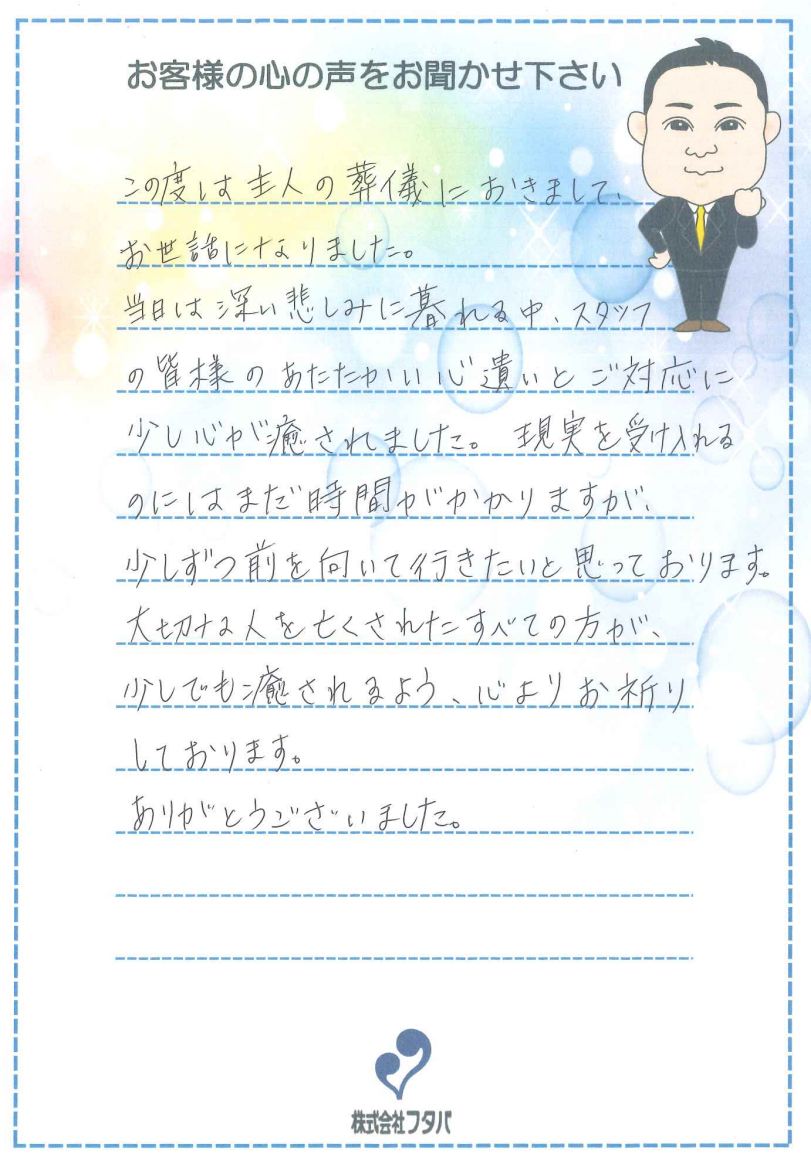 お客様の心の声をお聞かせ下さい
この度は主人の葬儀におきまして、
お世話になりました。
当日は深い悲しみに暮れる中、スタッフ
の皆様のあたたかい心遣いとご対応に
少し心が癒されました。現実を受け入れる
のにはまだ時間がかかりますが、
少しずつ前を向いて行きたいと思っております。
大切な人を亡くされたすべての方が、
少しでも癒されるよう、心よりお祈り
しております。
ありがとうございました。
株式会社フタバ